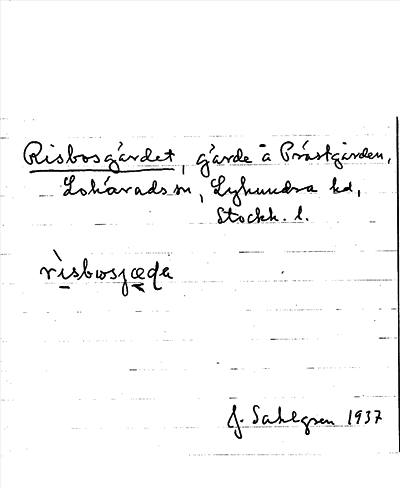 Risbosgärdet, gärde å Prästgården,
Lohärads sn, Lyhundra hd,
Stockh. l.
rìsbωsjæḍa
J. Sahlgren 1937